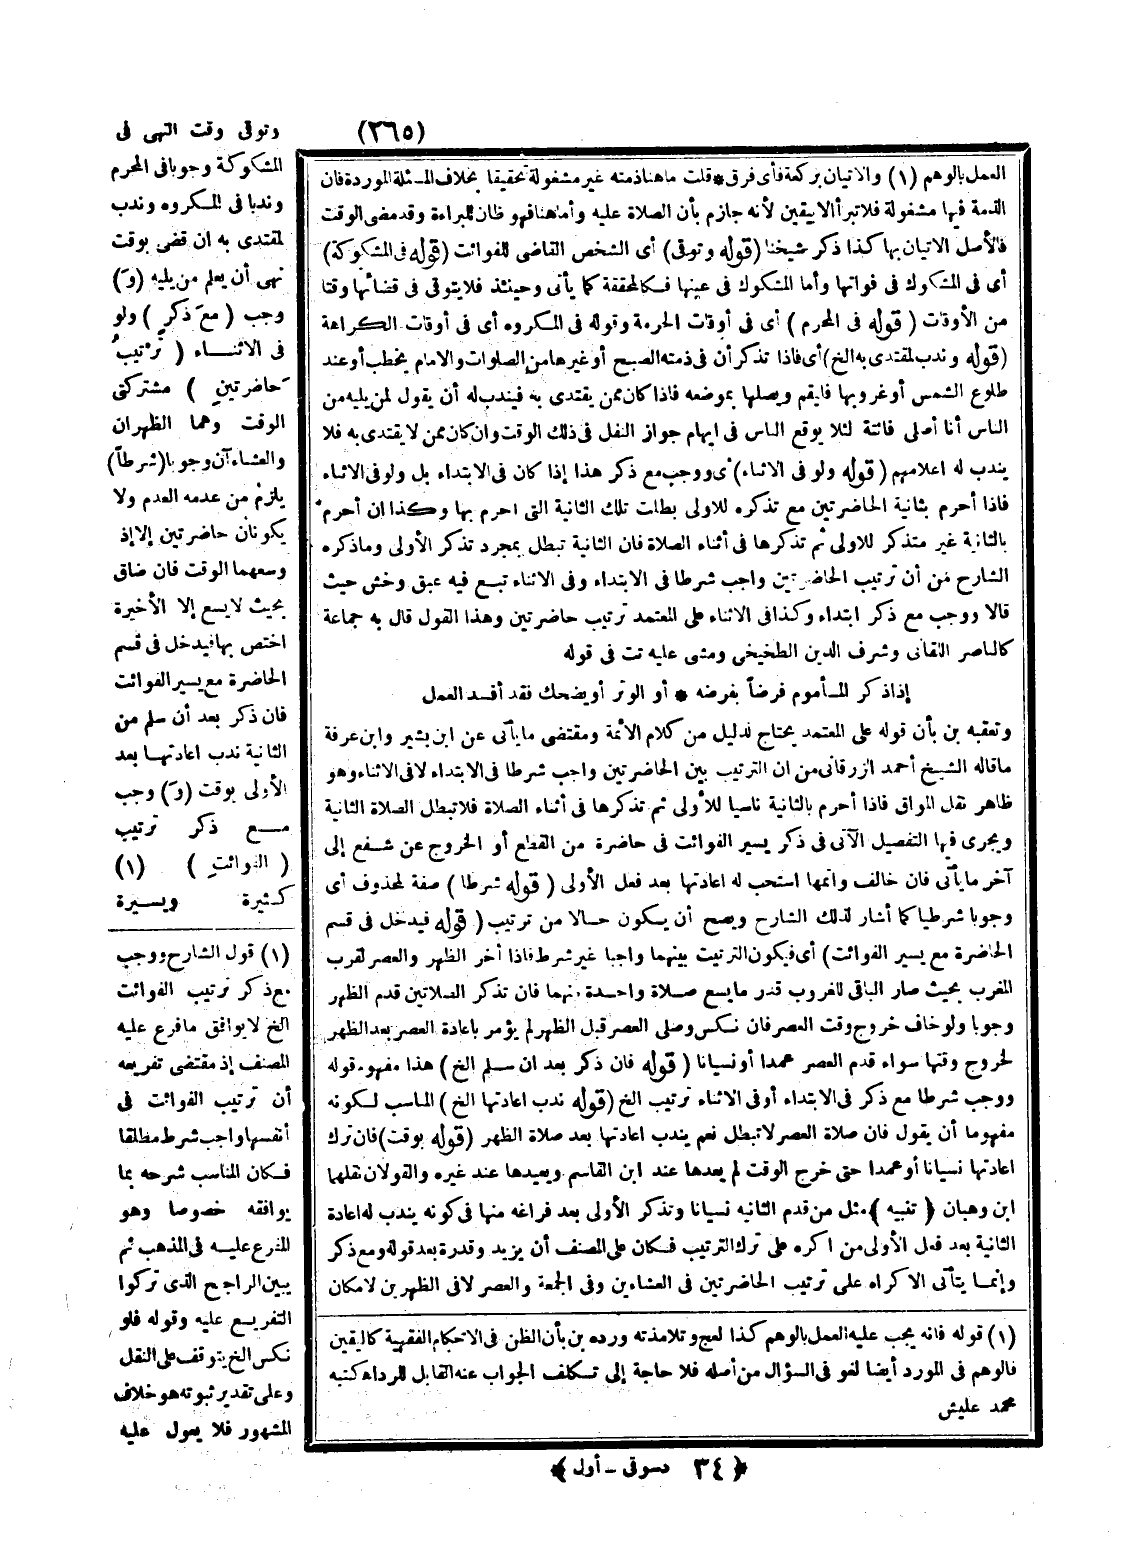 (٢٦٥)
العمل بالوهم (١) والاتيان بركعة فأى فرق * قلت ما هنا ذمته غير مشغولة تحقيقا بخلاف المسئلة الموردة فان
الذمة فيها مشغولة فلا تبرأ الا بيقين لأنه جازم بأن الصلاة عليه وأما هنا فهو ظان للبراءة وقد مضى الوقت
فالأصل الاتيان بها كذا ذكر شيخنا (قوله وتوقى) أى الشخص القاضى للفوائت (قوله فى المشكوكة)
أى فى المشكوك فى فواتها وأما المشكوك فى عينها فكالمحققة كما يأتى وحينئذ فلا يتوقى فى قضائها وقتا
من الأوقات (قوله فى المحرم) أى فى أوقات الحرمة وقوله فى المكروه أى فى أوقات الكراهة
(قوله وندب لمقتدى به الخ) أى فاذا تذكر أن فى ذمته الصبح أو غيرها من الصلوات والامام يخطب أو عند
طلوع الشمس أو غروبها فليقم ويصلها بموضعه فاذا كان ممن يقتدى به فيندب له أن يقول لمن يليه من
الناس أنا أصلى فائتة لئلا يوقع الناس فى ايهام جواز النفل فى ذلك الوقت وان كان ممن لا يقتدى به فلا
يندب له اعلامهم (قوله ولو فى الاثناء) أى ووجب مع ذكر هذا إذا كان فى الابتداء بل ولو فى الاثناء
فاذا أحرم بثانية الحاضرتين مع تذكره للاولى بطلت تلك الثانية التى احرم بها وكذا ان أحرم
بالثانية غير متذكر للاولى ثم تذكرها فى أثناء الصلاة فان الثانية تبطل بمجرد تذكر الأولى وما ذكره
الشارح من أن ترتيب الحاضرتين واجب شرطا فى الابتداء وفى الاثناء تبع فيه عبق وخش حيث
قالا ووجب مع ذكر ابتداء وكذا فى الاثناء على المعتمد ترتيب حاضرتين وهذا القول قال به جماعة
كالناصر اللقانى وشرف الدين الطخيخى ومشى عليه تت فى قوله
إذا ذكر المأموم فرضاً بفرضه * أو الوتر أو يضحك فقد أفسد العمل
وتعقبه بن بأن قوله على المعتمد يحتاج لدليل من كلام الأئمة ومقتضى ما يأتى عن ابن بشير وابن عرفة
ما قاله الشيخ أحمد الزرقانى من ان الترتيب بين الحاضرتين واجب شرطا فى الابتداء لا فى الاثناء وهو
ظاهر نقل المواق فاذا أحرم بالثانية ناسيا للأولى ثم تذكرها فى أثناء الصلاة فلا تبطل الصلاة الثانية
ويجرى فيها التفصيل الآتى فى ذكر يسير الفوائت فى حاضرة من القطع أو الخروج عن شفع إلى
آخر ما يأتى فان خالف وأتمها استحب له اعادتها بعد فعل الأولى (قوله شرطا) صفة لمحذوف أى
وجوبا شرطيا كما أشار لذلك الشارح ويصح أن يكون حالا من ترتيب (قوله فيدخل فى قسم
الحاضرة مع يسير الفوائت) أى فيكون الترتيب بينهما واجبا غير شرط فاذا أخر الظهر والعصر لقرب
المغرب بحيث صار الباقى للغروب قدر ما يسع صلاة واحدة منهما فان تذكر الصلاتين قدم الظهر
وجوبا ولو خاف خروج وقت العصر فان نكس وصلى العصر قبل الظهر لم يؤمر باعادة العصر بعد الظهر
لخروج وقتها سواء قدم العصر عمدا أو نسيانا (قوله فان ذكر بعد ان سلم الخ) هذا مفهوم قوله
ووجب شرطا مع ذكر فى الابتداء أو فى الاثناء ترتيب الخ (قوله ندب اعادتها الخ) المناسب لكونه
مفهوما أن يقول فان صلاة العصر لا تبطل نعم يندب اعادتها بعد صلاة الظهر (قوله بوقت) فان ترك
اعادتها نسيانا أو عمدا حتى خرج الوقت لم يعدها عند ابن القاسم ويعيدها عند غيره والقولان نقلهما
ابن وهبان ﴿تنبيه﴾ مثل من قدم الثانيه نسيانا وتذكر الأولى بعد فراغه منها فى كونه يندب له اعادة
الثانية بعد فعل الأولى من اكره على ترك الترتيب فكان على المصنف أن يزيد وقدرة بعد قوله ومع ذكر
وإنما يتأتى الاكراه على ترتيب الحاضرتين فى العشاءين وفى الجمعة والعصر لا فى الظهرين لامكان
(١) قوله فانه يجب عليه العمل بالوهم كذا لعج وتلامذته ورده بن بأن الظن فى الاحكام الفقهية كاليقين
فالوهم فى المورد أيضا لغو فى السؤال من أصله فلا حاجة إلى تكلف الجواب عنه القابل للرد اه كتبه
محمد عليش
وتوقى وقت النهى فى
المشكوكة وجوبا فى المحرم
وندبا فى المكروه وندب
لمقتدى به ان قضى بوقت
نهى أن يعلم من يليه (وَ)
وجب (معَ ذكرٍ) ولو
فى الاثناء (ترتيبُ
حاضرتينِ) مشتركتى
الوقت وهما الظهران
والعشاءآن وجوبا (شرطاً)
يلزم من عدمه العدم ولا
يكونان حاضرتين إلا إذ
وسعهما الوقت فان ضاق
بحيث لا يسع إلا الأخيرة
اختص بها فيدخل فى قسم
الحاضرة مع يسير الفوائت
فان ذكر بعد أن سلم من
الثانية ندب اعادتها بعد
الأولى بوقت (وَ) وجب
مع ذكر ترتيب
(الفوائتِ) (١)
كثيرة ويسيرة
(١) قول الشارح ووجب
مع ذكر ترتيب الفوائت
الخ لا يوافق ما فرع عليه
المصنف إذ مقتضى تفريعه
أن ترتيب الفوائت فى
أنفسها واجب شرط مطلقا
فكان المناسب شرحه بما
يوافقه خصوصا وهو
المفرع عليه فى المذهب ثم
يبين الراجح الذى تركوا
التفريع عليه وقوله فلو
نكس الخ يتوقف على النقل
وعلى تقدير ثبوته هو خلاف
المشهور فلا يعول عليه
﴿٣٤ دسوقى - أول﴾